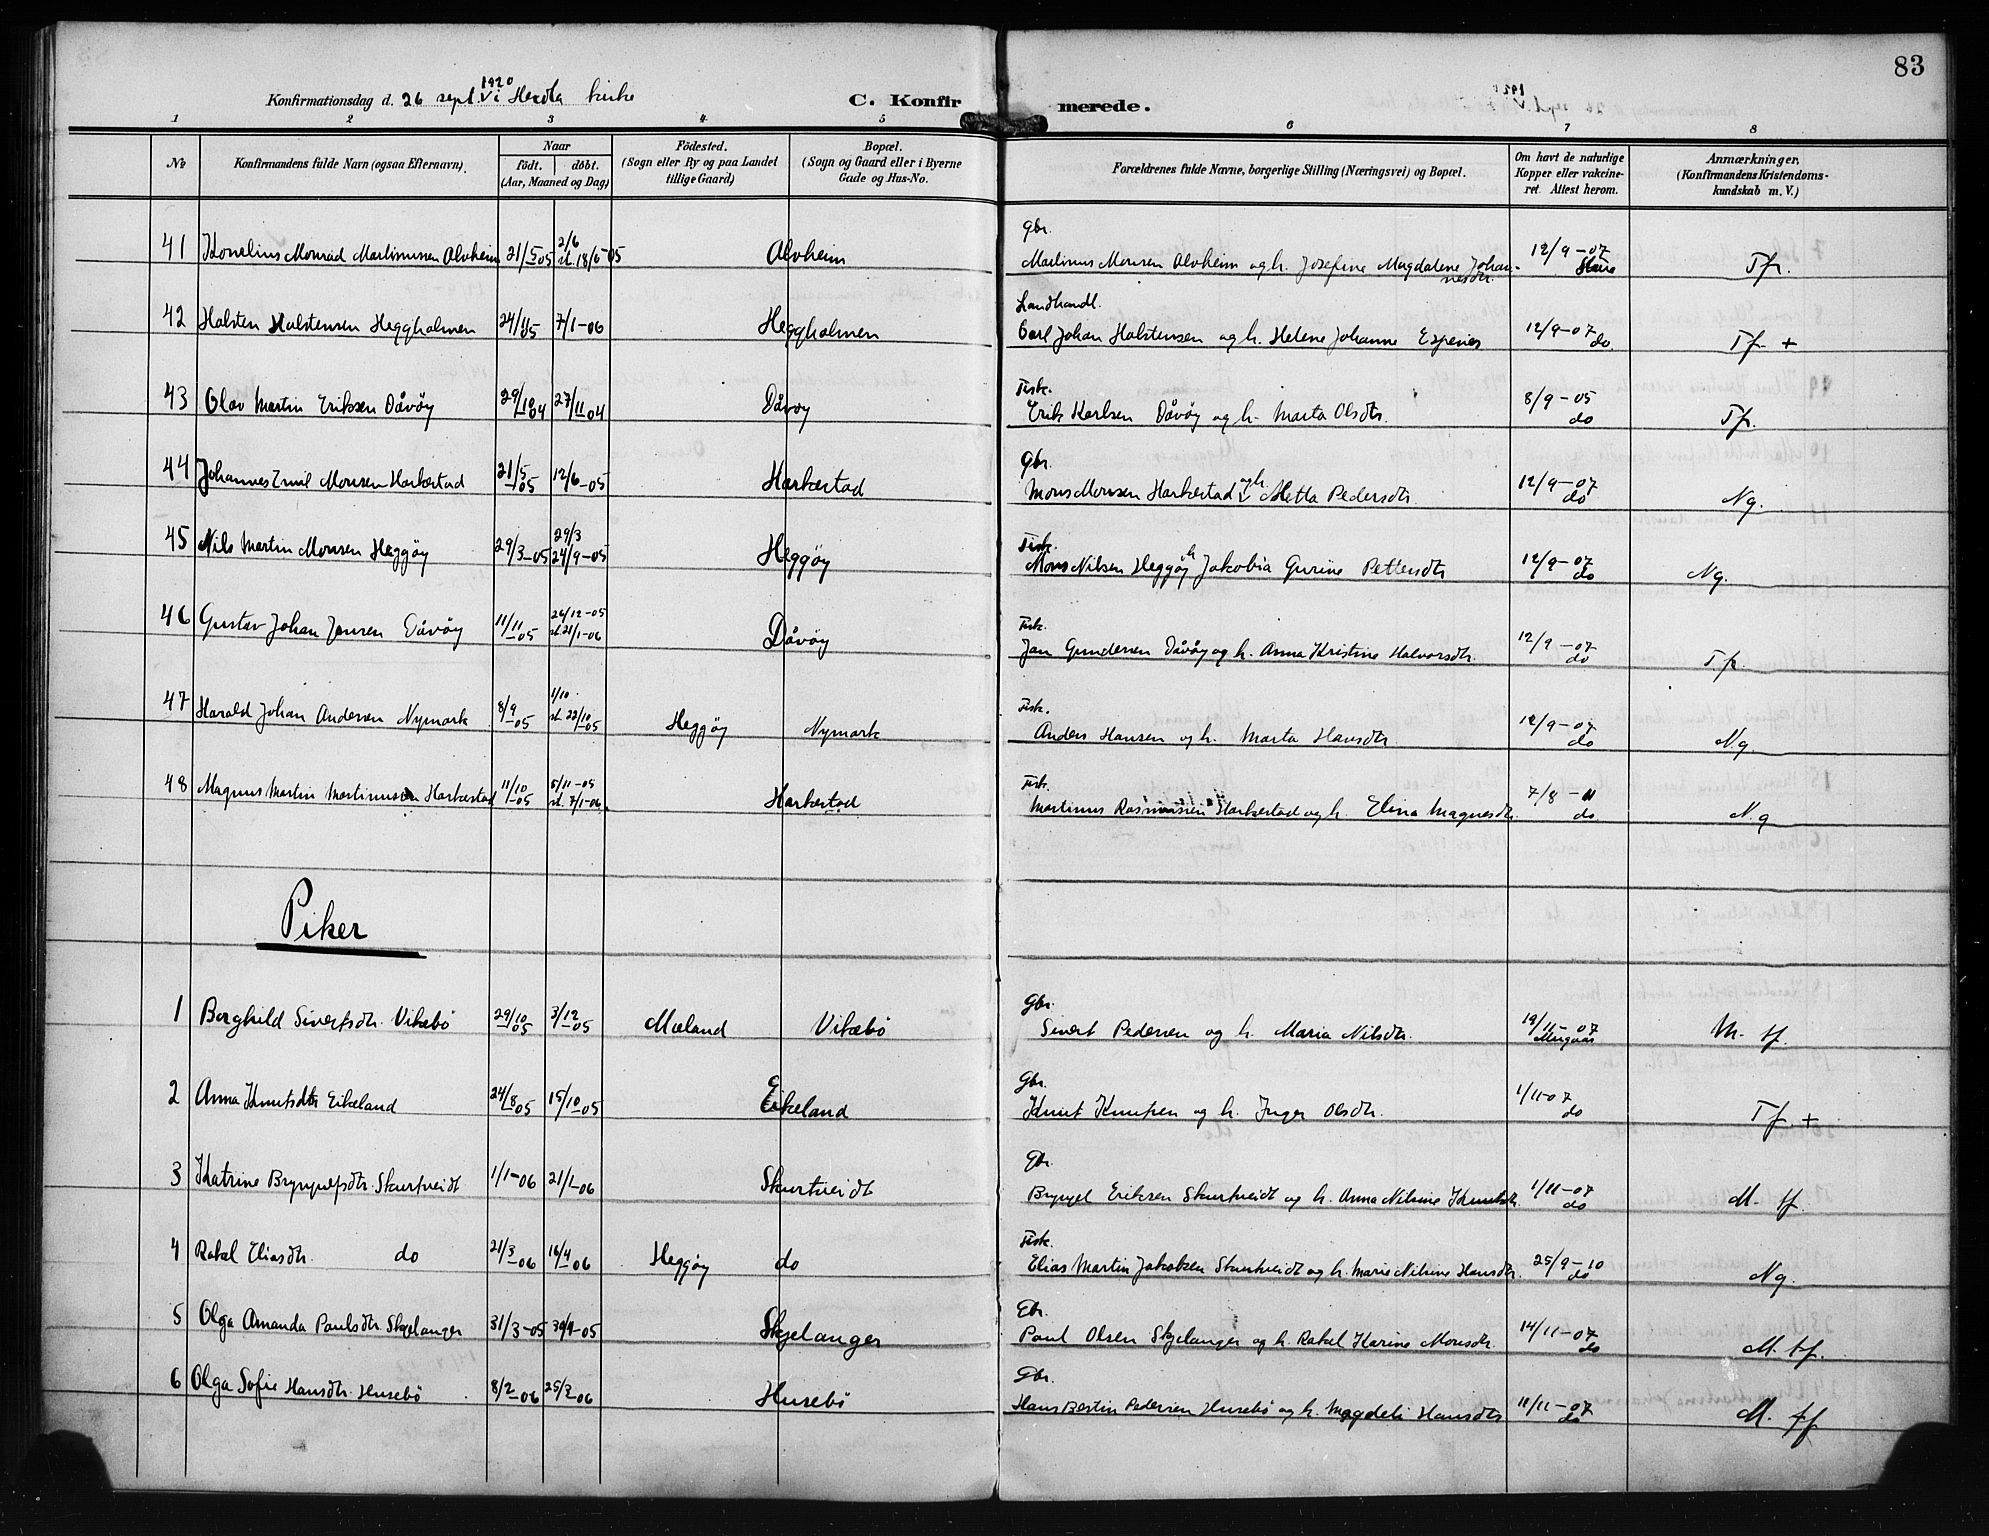 83
Konfirmationsdag d. 26 sept. 1920 i Herdla kirke
C. Konfirmerede.
1 2 3 4 5 6 7 8
No
Konfirmandens fulde Navn (ogsaa Efternavn).
Naar
födt. döbt.
(Aar, Maaned og Dag)
Födested.
(Sogn eller By og paa Landet
tillige Gaard)
Bopæl.
(Sogn og Gaard eller i Byerne
Gade og Hus-No.
Forældrenes fulde Navne, borgerlige Stilling (Næringsvei) og Bopæl.
Om havt de naturlige
Kopper eller vakcine-
ret. Attest herom.
Anmærkninger,
(Konfirmandens Kristendoms-
kundskab m. V.)
gbr.
41 Kornelius Monrad Martinussen Alvheim 21/5-05 2/6 st. 18/6-05 Alvheim Martinus Monsen Alvheim og h. Josefine Magdalene Johannesdtr. 12/9-07 Tfr.
Landhandl.
42 Halsten Halstensen Heggholmen 24/11 05 7/1-06 Heggholmen Carl Johan Halstensen og h. Helene Johanne Espenes 12/9-07 do Tfr. +
Fisk.
43 Olav Martin Eriksen Dåvøy 29/10 04 27/11 04 Dåvøy Erik Karlsen Dåvøy og h. Marta Olsdtr. 8/9-05 do Tfr.
gbr.
44 Johannes Emil Monsen Harkestad 21/5 05 12/6-05 Harkestad Mons Monsen Harkestad og h. Metta Pedersdtr. 12/9-07 do Ng.
Fisk.
45 Nils Martin Monsen Heggøy 29/3-05 29/3 24/9-05 Heggøy Mons Nilsen Heggøy h Jakobia Gurine Pettersdtr 12/9-07 do Ng.
Fisk.
46 Gustav Johan Jansen Dåvøy 11/11-05 26/12-05 st. 21/1-06 Dåvøy Jan Gundersen Dåvøy og h. Anna Kristine Halvorsdtr. 12/9-07 do Tfr.
Fisk.
47 Harald Johan Andersen Nymark 8/9-05 1/10 st. 22/10-05 Heggøy Nymark Anders Hansen og h. Marta Hansdtr 12/9-07 do Ng.
Fisk.
48 Magnus Martin Martinussen Harkestad 11/10-05 5/11-05 st. 7/1-06. Harkestad Martinus Rasmussen Harkestad og h. Elina Magnesdtr. 7/8-11 do. N.g
Piker
Gbr.
1 Borghild Sivertsdtr. Vikebø 29/10 05 3/12-05 Mæland Vikebø Sivert Pedersen og h. Maria Nilsdtr. 19/11-07 M. tf.
Gbr.
2 Anna Knutsdtr Eikeland 24/8 05 15/10-05 Eikeland Knut Knutsen og h. Inger Olsdtr. 1/11-07 do Tf. +
Gbr.
3 Katrine Bryngelsdtr. Skurtveidt 1/1-06 21/1-06 Skurtveidt Bryngel Eriksen Skurtveidt og h. Anna Nilsine Knutsdtr. 1/11-07 do M. tf.
Fisk.
4 Rakel Eliasdtr. do 21/3-06 16/4-06 Heggøy do Elias Martin Jakobsen Skurtveidt og h. Marie Nilsine Hansdtr. 25/9-10 do Ng.
Gbr.
5 Olga Amanda Paulsdtr. Skjelanger 31/3-05 30/4-05 Skjelanger Paul Olsen Skjelanger og h. Rakel Karine Monsdtr. 14/11-07 do M. tf.
Gbr.
6 Olga Sofie Hansdtr. Husebø 8/2-06 25/2-06 Husebø Hans Bertin Pedersen Husebø og h. Magdeli Hansdtr 11/11-07 do M. tf